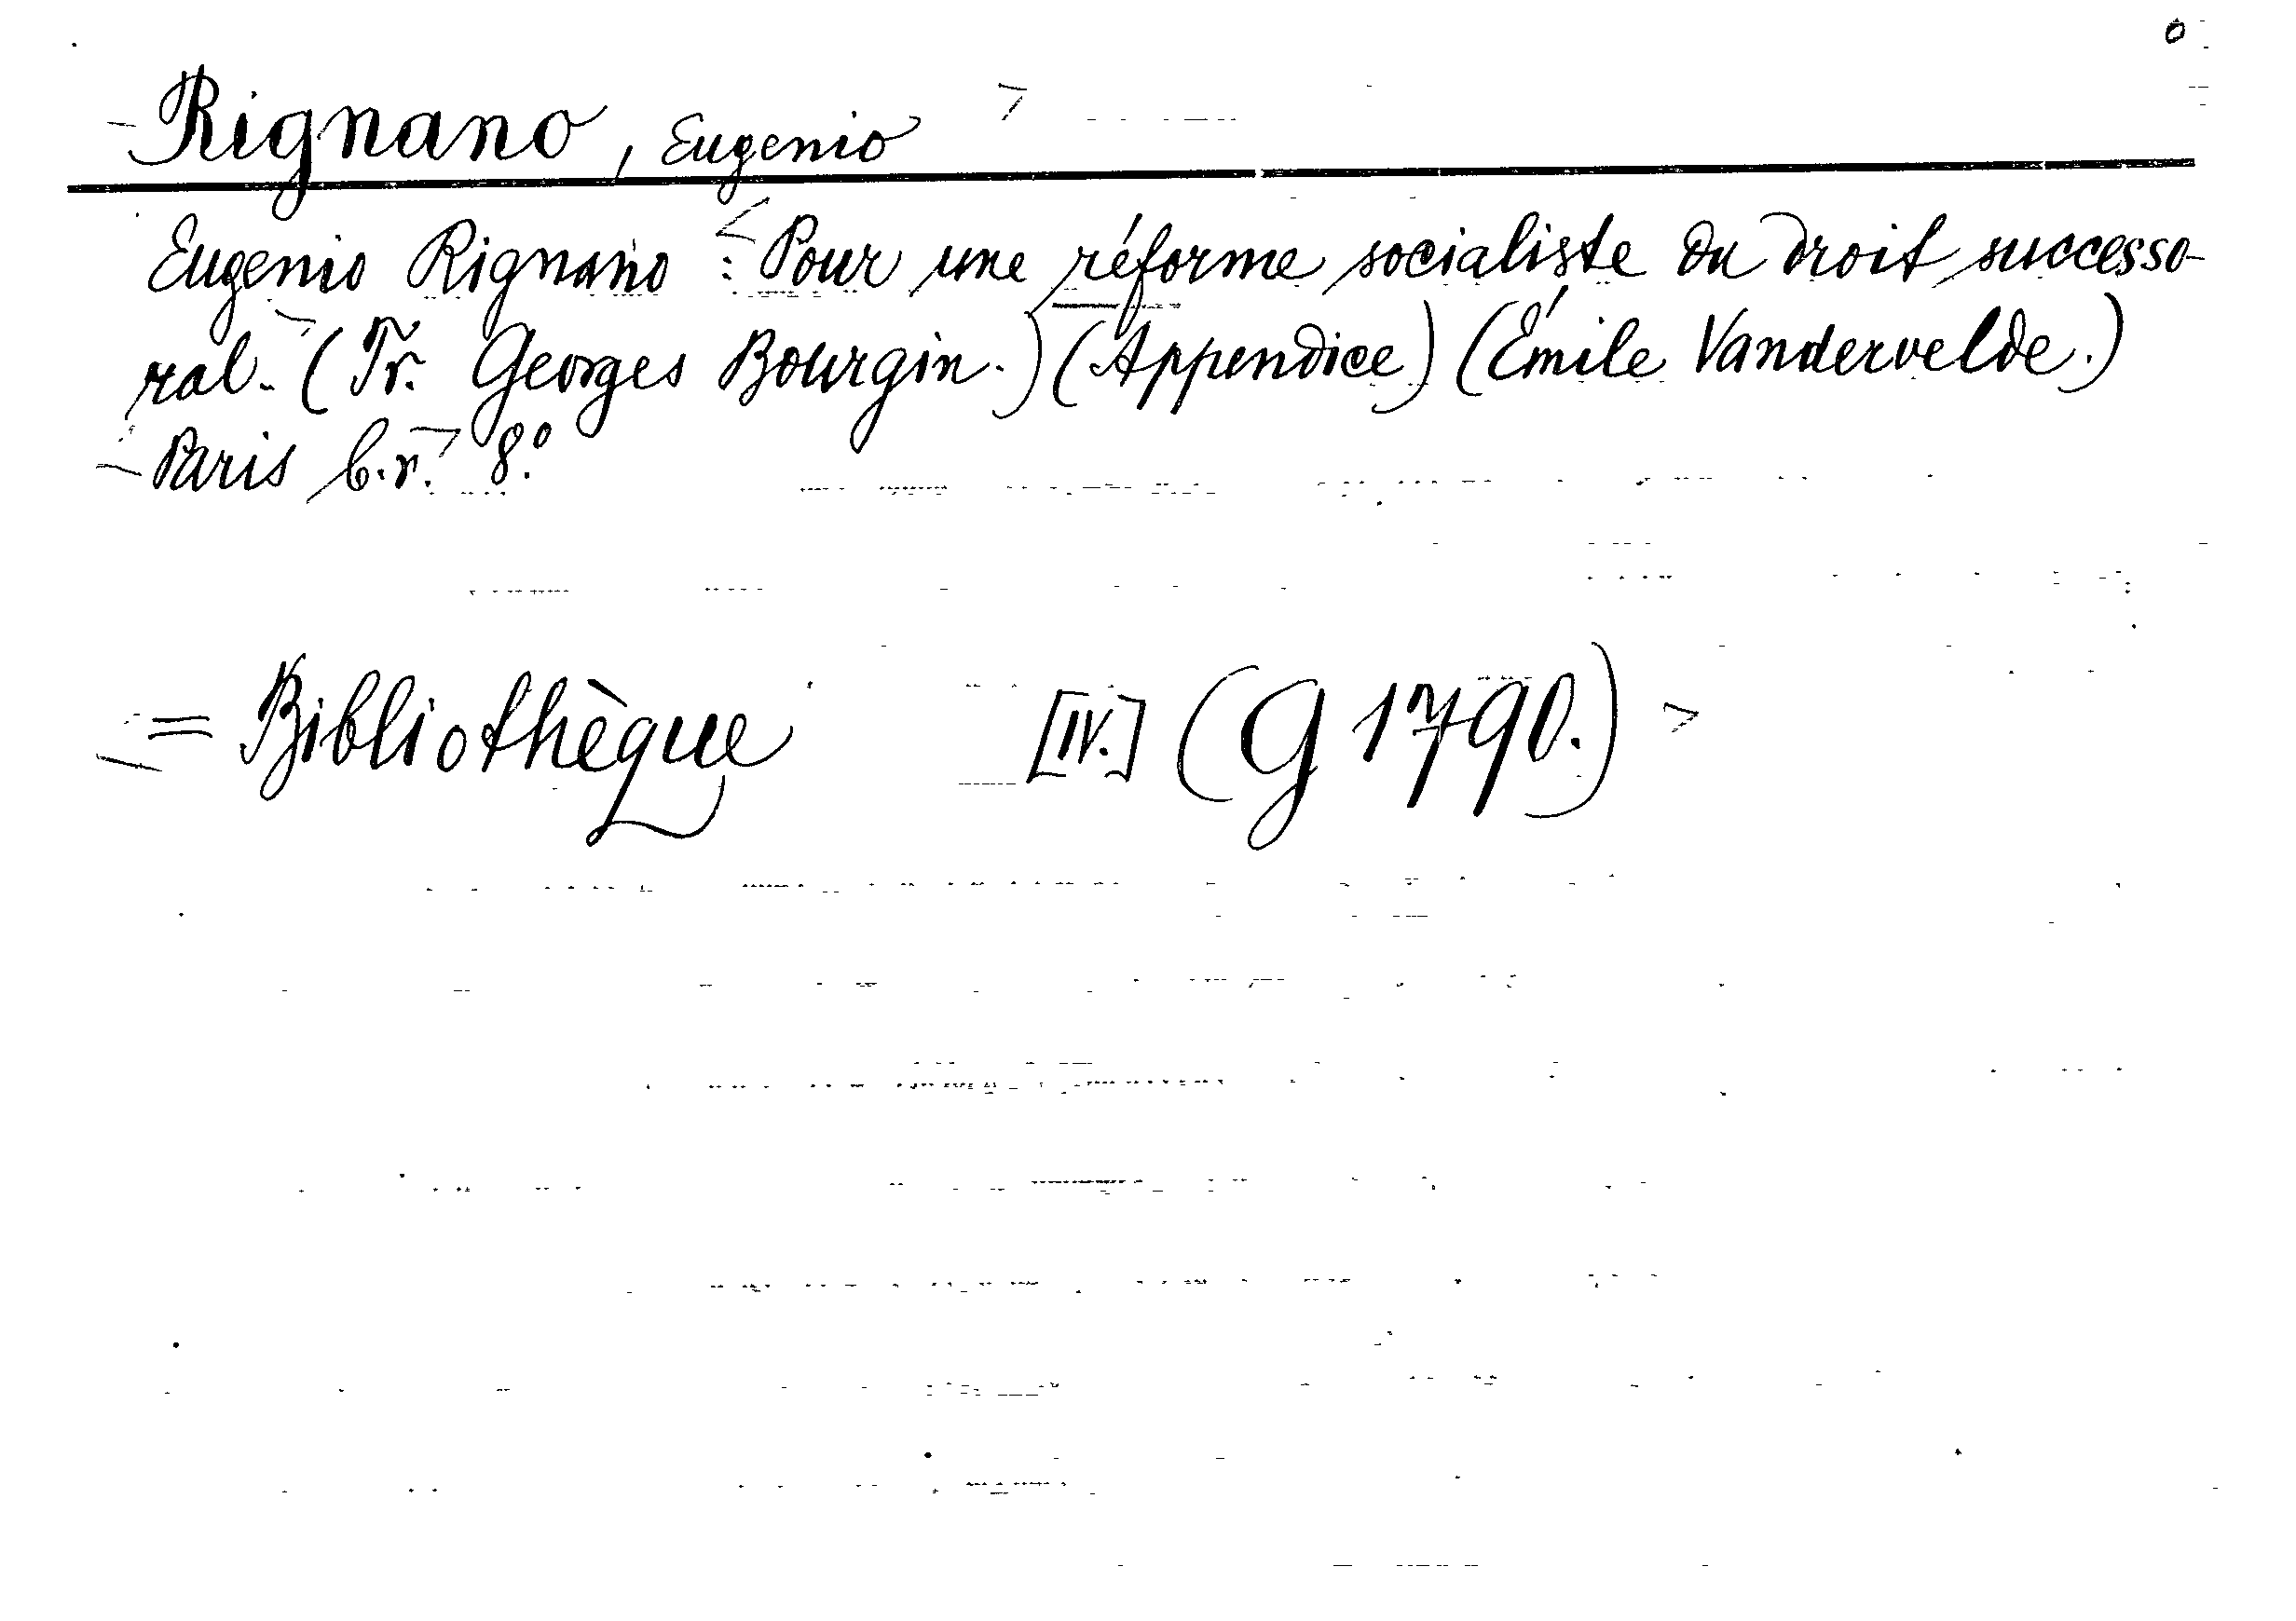 Rignano, Eugenio
Eugenio Rignano : Pour une réforme socialiste du droit successo-
ral. (Tr. Georges Bourgin.) (Appendice) (Émile Vandervelde.)
Paris 8.°
= Bibliothèque [IV.] (G 1790.)